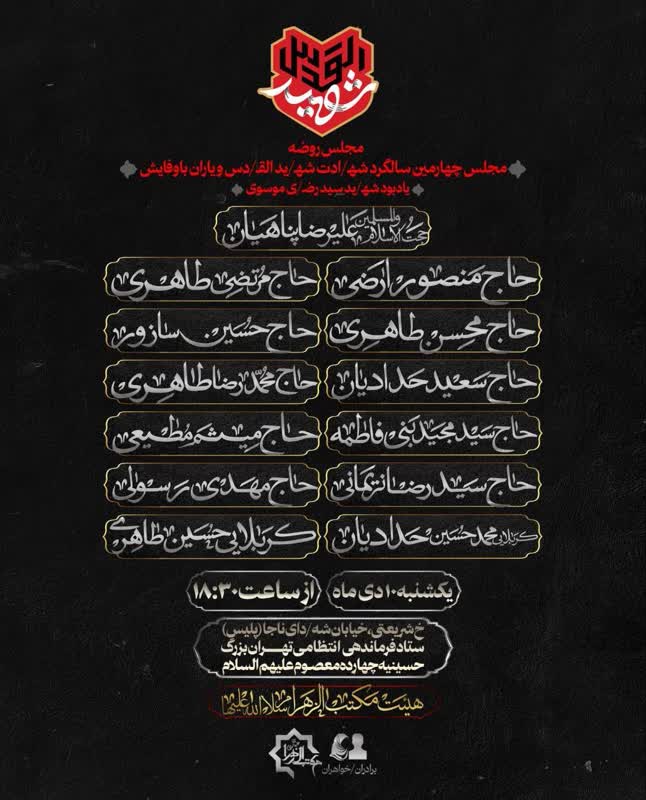 شهید القدس
مجلس روضه
مجلس چهارمین سالگرد شهـ/ادت شهـ/ید القـ/دس و یاران باوفایش
یادبود شهـ/ید سید رضـ/ی موسوی
حجت الاسلام والمسلمین علیرضا پناهیان
حاج منصور ارضی
حاج مرتضی طاهری
حاج محسن طاهری
حاج حسین سازور
حاج سعید حدادیان
حاج محمدرضا طاهری
حاج سید مجید بنی فاطمه
حاج میثم مطیعی
حاج سید رضا نریمانی
حاج مهدی رسولی
کربلایی محمد حسین حدادیان
کربلایی حسین طاهری
یکشنبه ۱۰ دی ماه
از ساعت ۱۸:۳۰
خ شریعتی، خیابان شهـ/دای ناجا (پلیس)
ستاد فرماندهی انتظامی تهران بزرگ
حسینیه چهارده معصوم علیهم السلام
هیئت مکتب الزهرا سلام الله علیها
برادران/خواهران
مکتب الزهرا